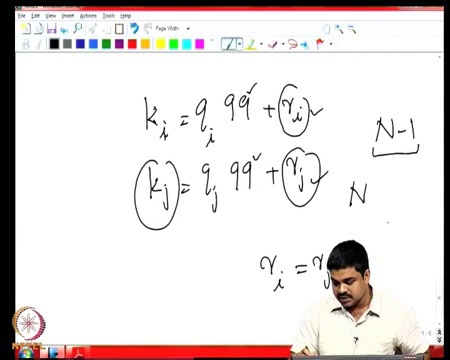 File Edit View Insert Actions Tools Help
Page Width
k_i = q_i 99 + r_i
N-1
k_j = q_j 99 + r_j
N
r_i = r_j